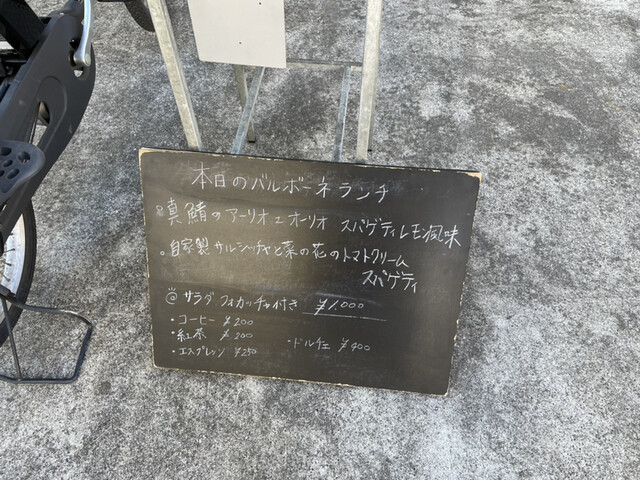 本日のバルボーネランチ
真鯖のアーリオエオーリオ スパゲティレモン風味
。自家製サルシッチャと菜の花のトマトクリーム
スパゲティ
@サラダフォカッチャ付き ¥1,000
・コーヒー ¥200
・紅茶 ¥200 ・ドルチェ ¥400
・エスプレッソ ¥250